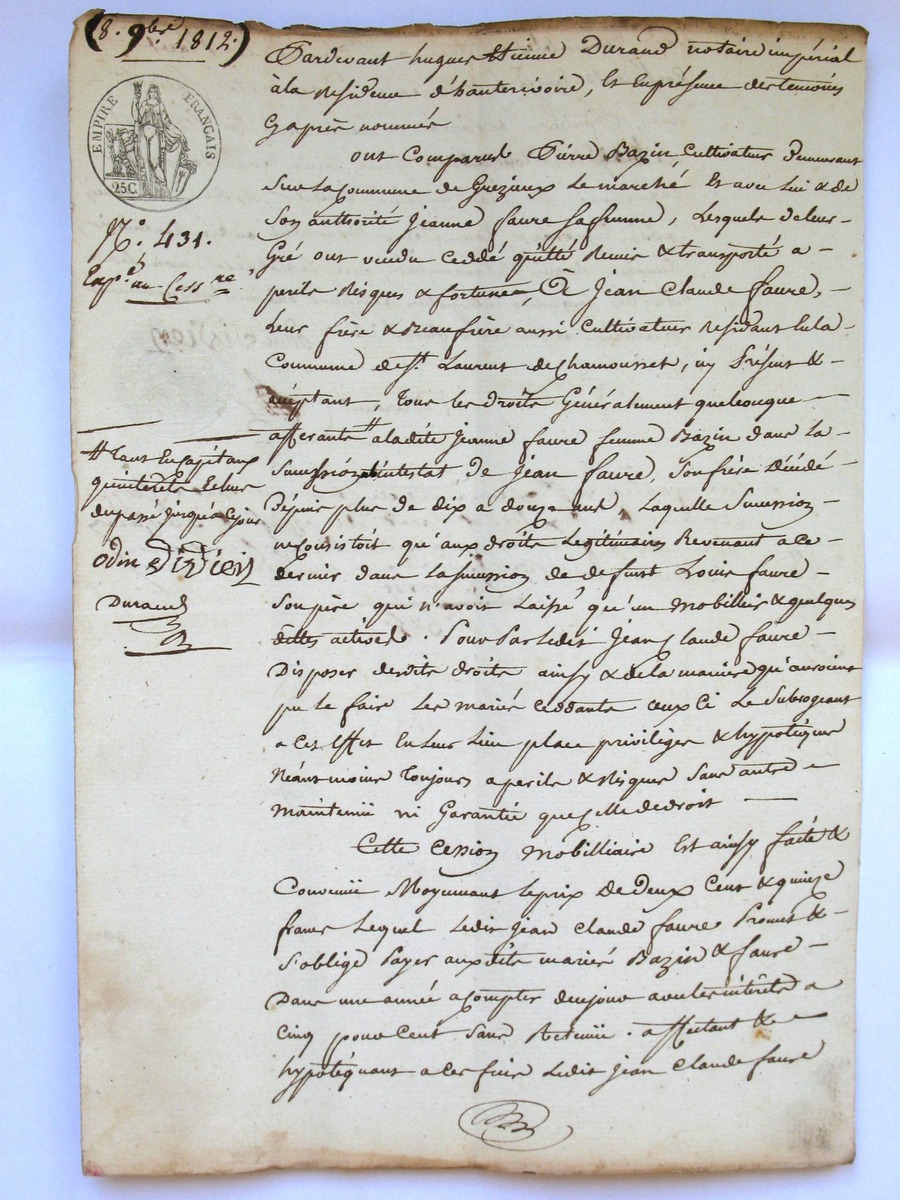 (8. 9bre 1812.)
EMPIRE FRANÇAIS
25C
N.° 431.
Exp.é au Cessre
Pardevant hugues Etienne Durand notaire impérial
à la Residence d'hauterivoire, Et En présence des temoins
Cy après nommés
ont Comparus Pierre Bazin, Cultivateur demeurant
Sur La Commune de Grezieux Le marché Et avec Lui & de
Son authorité Jeanne faure sa femme, Lesquels de leur
Gré ont vendu Ceddé quitté Remis & transporté a
perils Risques & fortune, A Jean Claude faure,
Leur frère & Beaufrère aussi Cultivateur Residant En la
Commune de St. Laurent de Chamousset, icy Présent &
acceptant, Tous les droits Généralement quelconque
afferants # à ladite Jeanne faure femme Bazin dans la
Succession abintestat de Jean faure, Son frère Décédé
Depuis plus de dix a douze ans, Laquelle Succession
ne Consistoit qu'aux droits Legitimaires Revenant a ce
dernier dans La succession de defunt Louis faure
Son père qui n'avoit Laissé qu'un Mobillier & quelques
dettes actives. Pour Par Ledit Jean Claude faure
Disposer desdits droits ainsy & de la maniere qu'auroient
pu le faire Les mariés Ceddants ceux Ci Le Subrogeant
a Cet Effet En Leur Lieu place privilèges & hypotèques
Néantmoins Toujours a perils & Risques Sans autre
Maintenüe ni Garantie que Celle de droit
Cette Cession Mobilliaire Est ainsy faite &
Convenüe Moyennant Le prix de Deux Cent & quinze
francs Lequel Ledit Jean Claude faure Promet &
S'oblige Payer auxdits mariés Bazin & faure
Dans une année a compter de ce jour avec les intérêts a
Cinq pour Cent Sans Retenüe. affectant &
hypotéquant a Ces fins Ledit Jean Claude faure
# Tant En Capitaux
qu'intérêts Echus
du passé jusqu'a Ce jour
odin
Durand